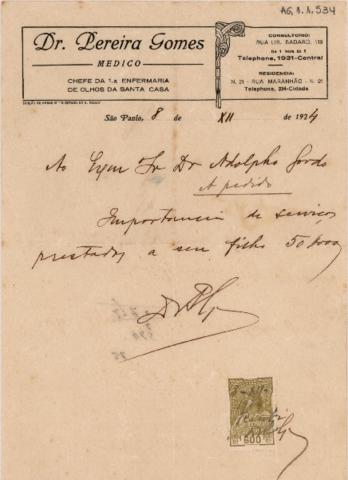 AG.1.1.534
Dr. Pereira Gomes
MEDICO
CHEFE DA 1.a ENFERMARIA
DE OLHOS DA SANTA CASA
CONSULTORIO:
RUA LIB. BADARÓ, 118
Telephone, 1931-Central
RESIDENCIA:
N. 21 - RUA MARANHÃO - N. 21
Telephone, 214-Cidade
São Paulo, 8 de XII de 1924
Ao Exmo Sr Dr Adolpho Gordo
A pedido
Importancia de serviços
prestados a seu filho 50$000
600